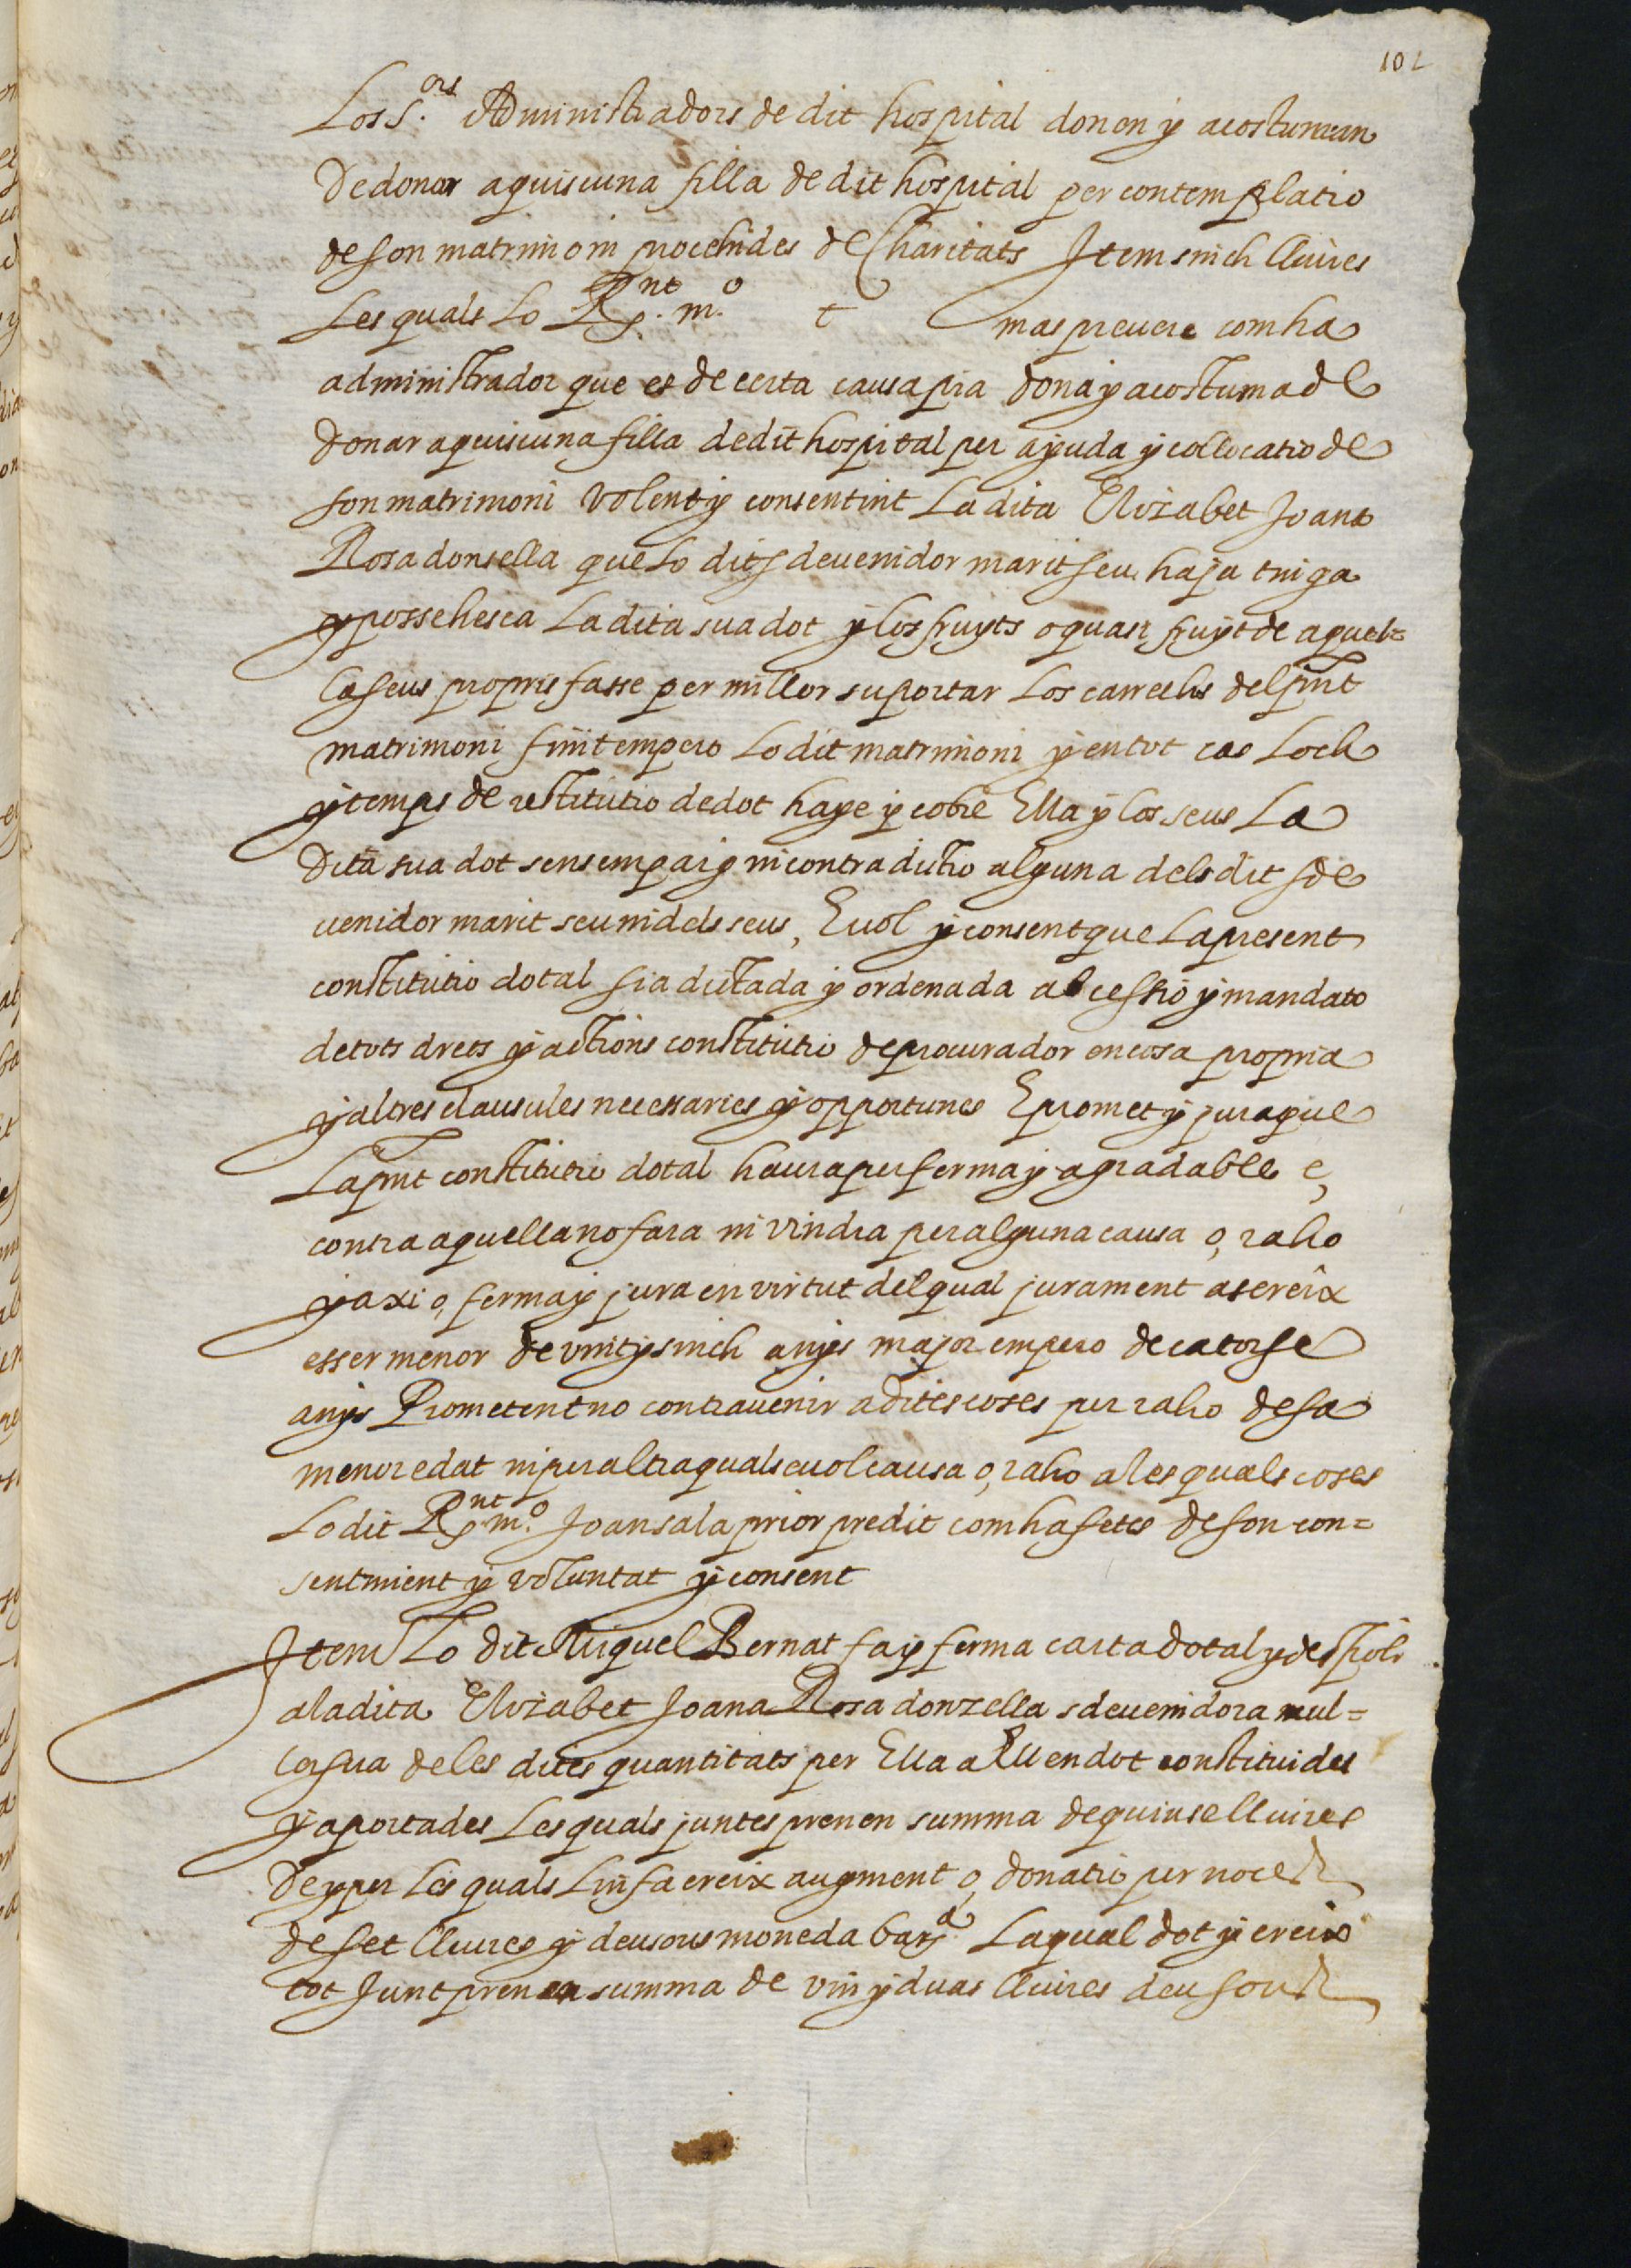 102
Los S.ors Administradors de dit hospital donen y acostuman
de donar a quiscuna filla de dit hospital per contemplatio
de son matrimoni procehides de Charitats Item sinch lliures
Les quals Lo R.nt m.o t mas prevere com ha
administrador que es de certa causa pia dona y acostuma de
donar a quiscuna filla de dit hospital per ajuda y collocatio de
son matrimoni volent y consentint La dita Elizabet Joana
Rosa donsella que Lo dit sdevenidor marit seu haja tniga
y possehesca La dita sua dot y los fruyts o quasi fruyt de aquel=
la seus propris fasse per millor suportar Los carrechs del pnt
matrimoni finit empero Lo dit matrimoni y en tot cas Loch
y temps de restitutio de dot haye y cobre Ella y los seus La
dita sua dot sens empaig ni contradictio alguna dels dit sde
venidor marit seu ni dels seus, E vol y consent que La present
constitutio dotal sia dictada y ordenada ab cessio y mandato
de tots drets y actions constitutio de procurador en cosa propria
y altres clausules necessaries y opportunes E promet y jura que
La pnt constitutio dotal haura per ferma y agradable e,
contra aquella no fara ni vindra per alguna causa o, raho
y axi o, ferma y jura en virtut del qual jurament asereix
esser menor de vint y sinch anys major empero de catorse
anys Prometent no contravenir a dites coses per raho de sa
menor edat ni per altra qualsevol causa o, raho a les quals coses
Lo dit R.nt m.o Joan sala prior predit com ha fetes de son con=
sentiment y voluntat y consent
Item Lo dit Miquel Bernat fa y ferma carta dotal y de spoli
a la dita Elizabet Joana Rosa donzella sdevenidora mul=
ler sua de les dites quantitats per Ella a Ell en dot constituides
y aportades Les quals juntes prenen summa de quinse lliures
de y per Les quals Lin fa creix augment o, donatio per noces
de set lliures y deu sous moneda bar.a La qual dot y creix
tot Junt prenen summa de vin y duas lliures deu sous